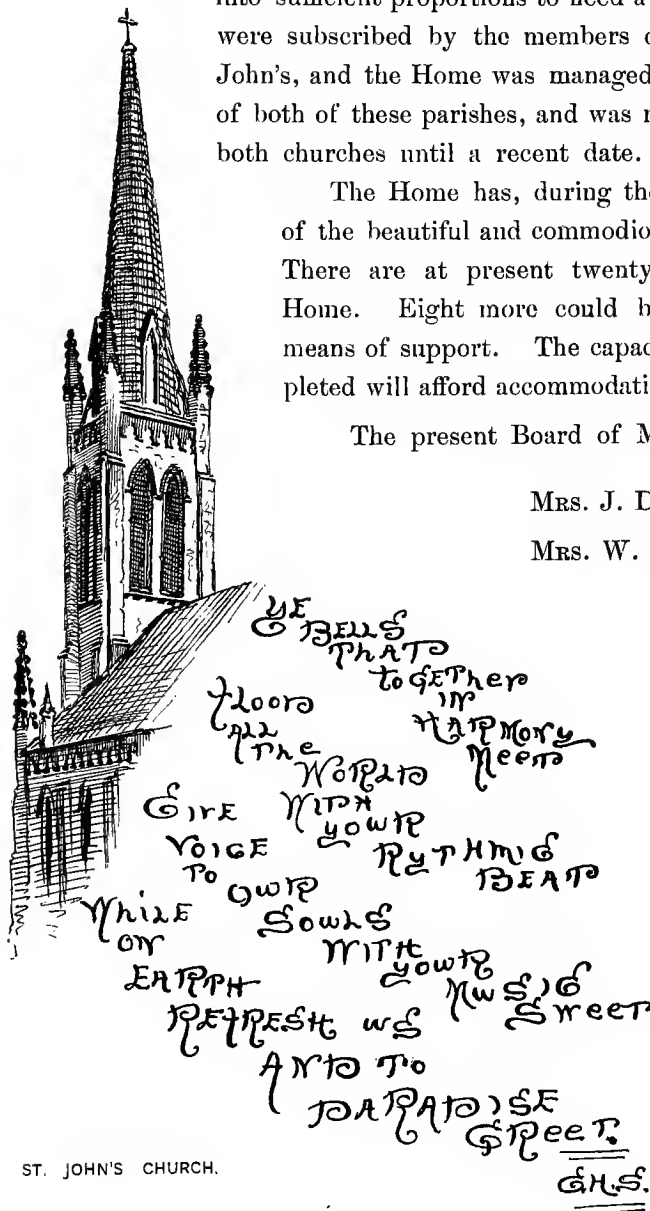 into sufficient proportions to need a
were subscribed by the members
John's, and the Home was managed
of both of these parishes, and was
both churches until a recent date.
The Home has, during the
of the beautiful and
There are at present twenty
Home. Eight more could
means of support. The
pleted will afford
The present Board of
MRS. J.
MRS. W.
YE
BELLS
THAT
TOGETHER
IN
HARMONY
MEET
FLOOD
ALL
THE
WORLD
WITH
YOUR
RYTHMIC
BEAT
GIVE
VOICE
TO
OUR
SOULS
WITH
YOUR
MUSIC
SWEET
WHILE
ON
EARTH
REFRESH US
AND TO
PARADISE
GREET.
G.H.S.
ST. JOHN'S CHURCH.